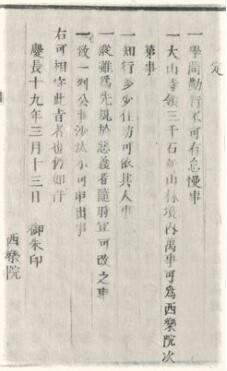 定
一学問勤行不可有怠慢事
一大山寺領三千石如山林境内萬事可為西樂院次
第事
一知行多少住坊可依其人事
一縦雖為先規於惡義者隨時宜可改之事
一致一列公事沙汰不可申出事
右可相守此旨者也仍如件
慶長十九年三月十三日 御朱印
西樂院